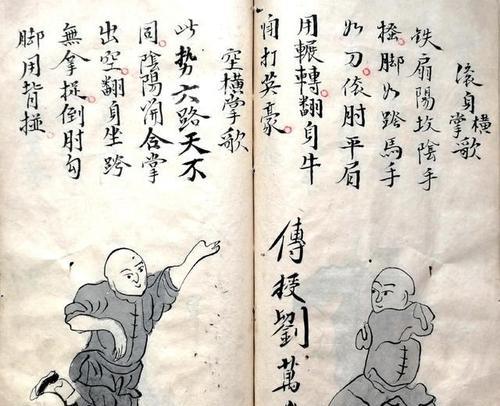 滚身橫掌歌
铁扇陽坆陰手
脚如跨馬手
如刀後肘平眉
用輾轉翻身牛
角打英豪
傳授劉萬
空橫掌歌
此势六路天不
同陰陽開合掌
出空翻身坐跨
無拿捉倒肘勾
脚用背撞